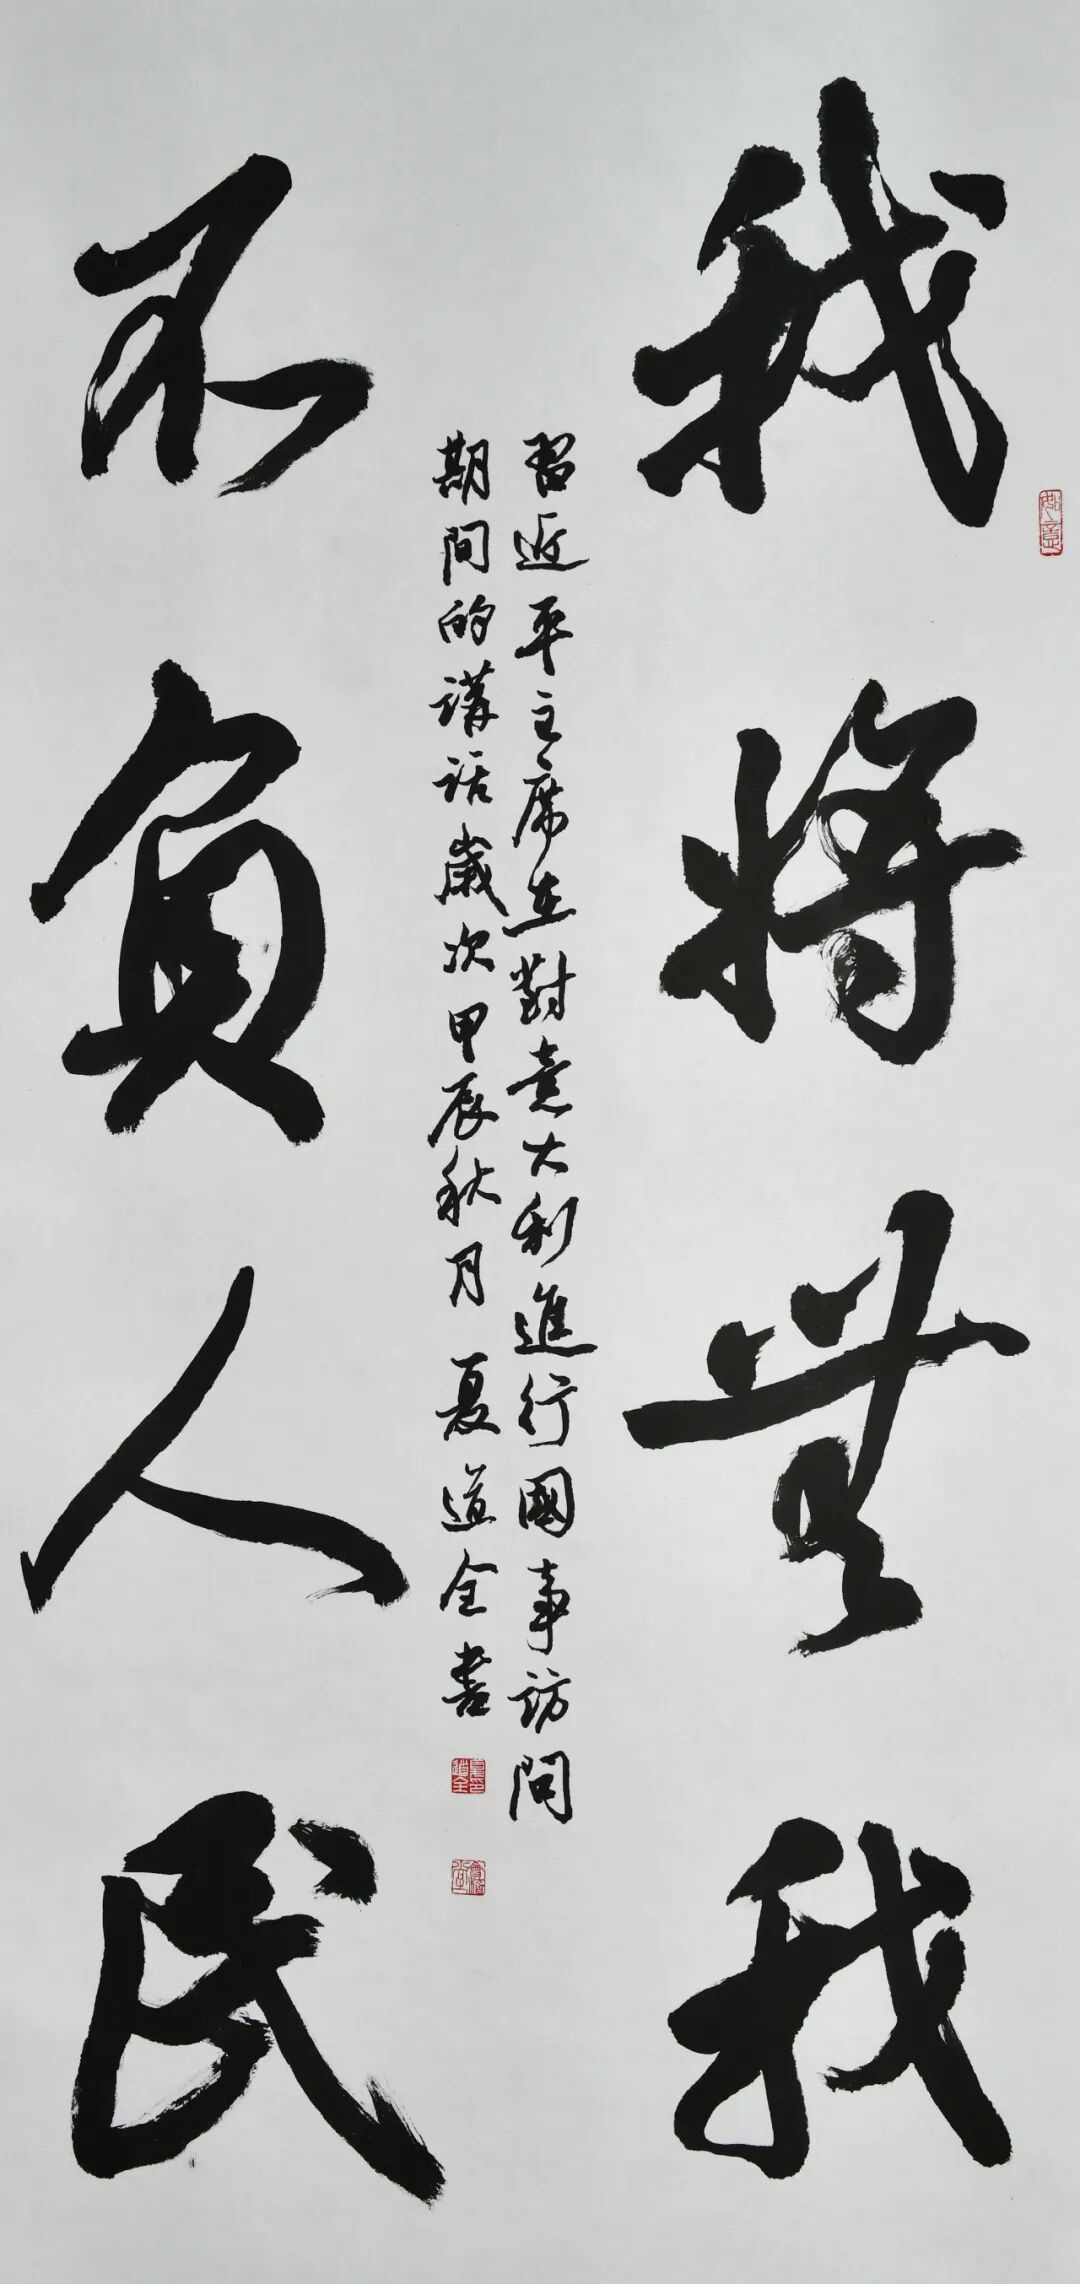 我将無我
如意
習近平主席在對意大利進行國事訪問
期间的講話歲次甲辰秋月 夏道全書
不負人民